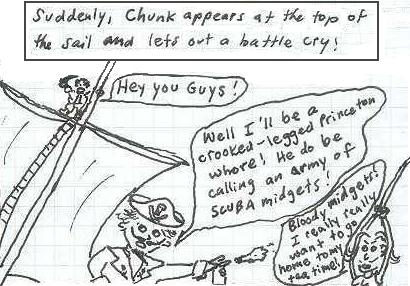 Suddenly, Chunk appears at the top of
the sail and lets out a battle cry!
Hey you Guys!
Well I'll be a
crooked-legged Princeton
whore! He do be
calling an army of
SCUBA midgets!
Bloody midgets!
I really really
want to go
home to my
tea time!